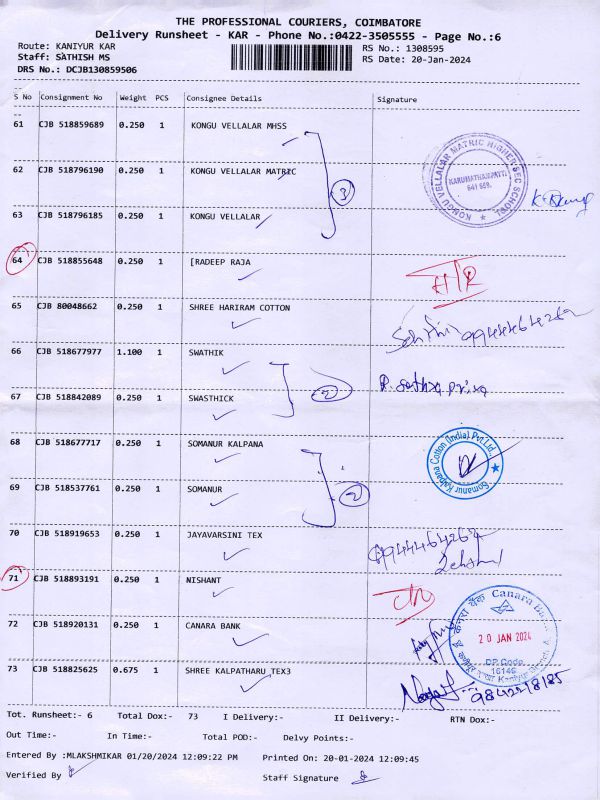 THE PROFESSIONAL COURIERS, COIMBATORE
Delivery Runsheet - KAR - Phone No.:0422-3505555 - Page No.:6
Route: KANIYUR KAR RS No.: 1308595
Staff: SATHISH MS RS Date: 20-Jan-2024
DRS No.: DCJB130859506
S No Consignment No Weight PCS Consignee Details Signature
61 CJB 518859689 0.250 1 KONGU VELLALAR MHSS
62 CJB 518796190 0.250 1 KONGU VELLALAR MATRIC
3
KONGU VELLALAR MATRIC HIGHER SEC SCHOOL
KARUMATHAMPATTI
641 659.
63 CJB 518796185 0.250 1 KONGU VELLALAR
64 CJB 518855648 0.250 1 [RADEEP RAJA
65 CJB 80048662 0.250 1 SHREE HARIRAM COTTON
9944464262
66 CJB 518677977 1.100 1 SWATHIK
R. Sathya priya
67 CJB 518842089 0.250 1 SWASTHICK
2
68 CJB 518677717 0.250 1 SOMANUR KALPANA
Somanur Kalpana Cotton (India) Pvt.Ltd.
69 CJB 518537761 0.250 1 SOMANUR
2
70 CJB 518919653 0.250 1 JAYAVARSINI TEX
9944464262
71 CJB 518893191 0.250 1 NISHANT
72 CJB 518920131 0.250 1 CANARA BANK
केनरा बैंक Canara Bank
20 JAN 2024
DP Code
16146
73 CJB 518825625 0.675 1 SHREE KALPATHARU TEX3
9842218185
Tot. Runsheet:- 6 Total Dox:- 73 I Delivery:- II Delivery:- RTN Dox:-
Out Time:- In Time:- Total POD:- Delvy Points:-
Entered By :MLAKSHMIKAR 01/20/2024 12:09:22 PM Printed On: 20-01-2024 12:09:45
Verified By Staff Signature